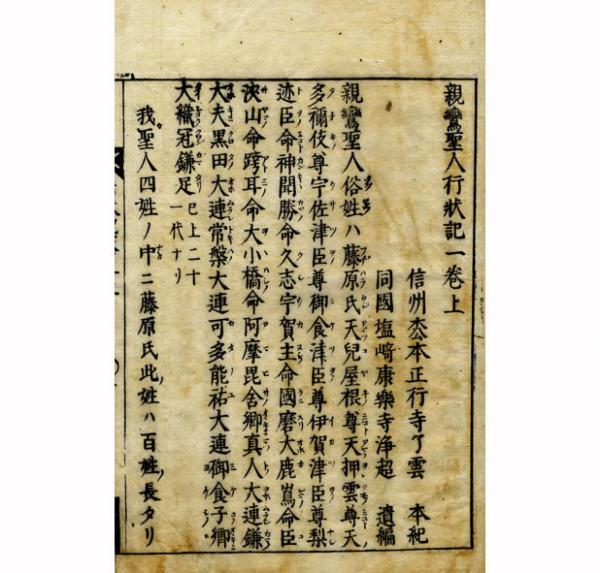 親鸞聖人行状記一巻上
信州枩本正行寺了雲 本紀
同國塩﨑康樂寺浄超 遺編
親鸞聖人俗姓ハ藤原氏天兒屋根尊天押雲尊天
多禰伎尊宇佐津臣尊御食津臣尊伊賀津臣尊梨
迹臣命神聞勝命久志宇賀主命國磨大鹿嶌命臣
狹山命跨耳命大小橋命阿摩毘舍卿真人大連鎌
大夫黒田大連常盤大連可多能祐大連御食子卿
大織冠鎌足 已上二十一代ナリ
我聖人四姓ノ中ニ藤原氏此姓ハ百姓ノ長タリ